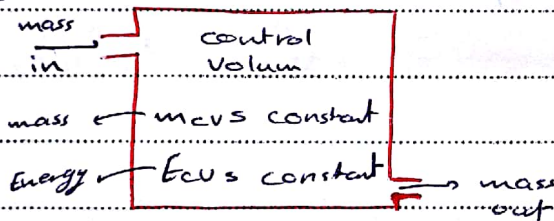 mass
in
control
volum
mass ← mcvs constant
Energy ← Ecvs constant
→ mass
out